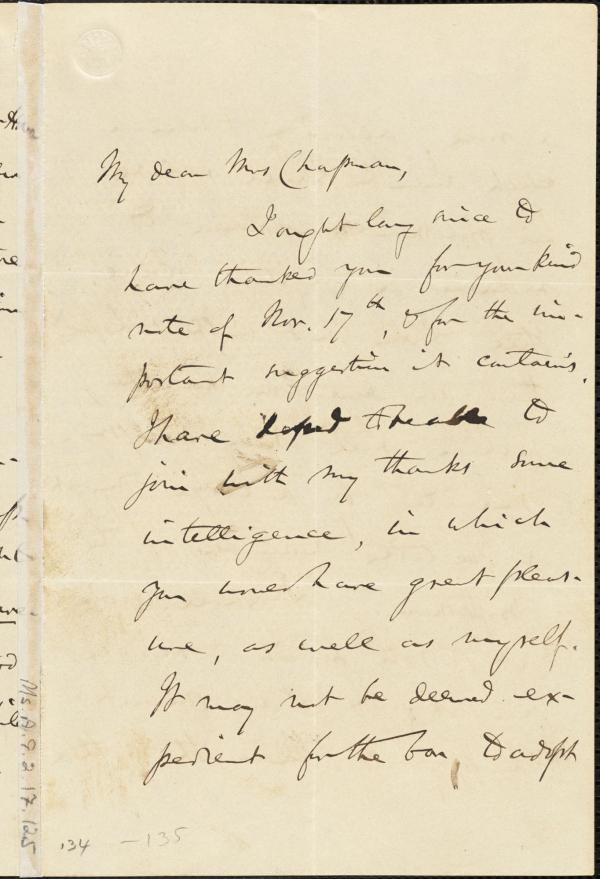 My dear Mrs Chapman,
I ought long since to
have thanked you for your kind
note of Nov. 17th, & for the im-
portant suggestion it contains.
I have hoped to be able to
join with my thanks some
intelligence, in which
you would have great pleas-
ure, as well as myself.
It may not be deemed ex-
pedient for the bar, to adopt
Ms. A.9.2.17.125
134 -135